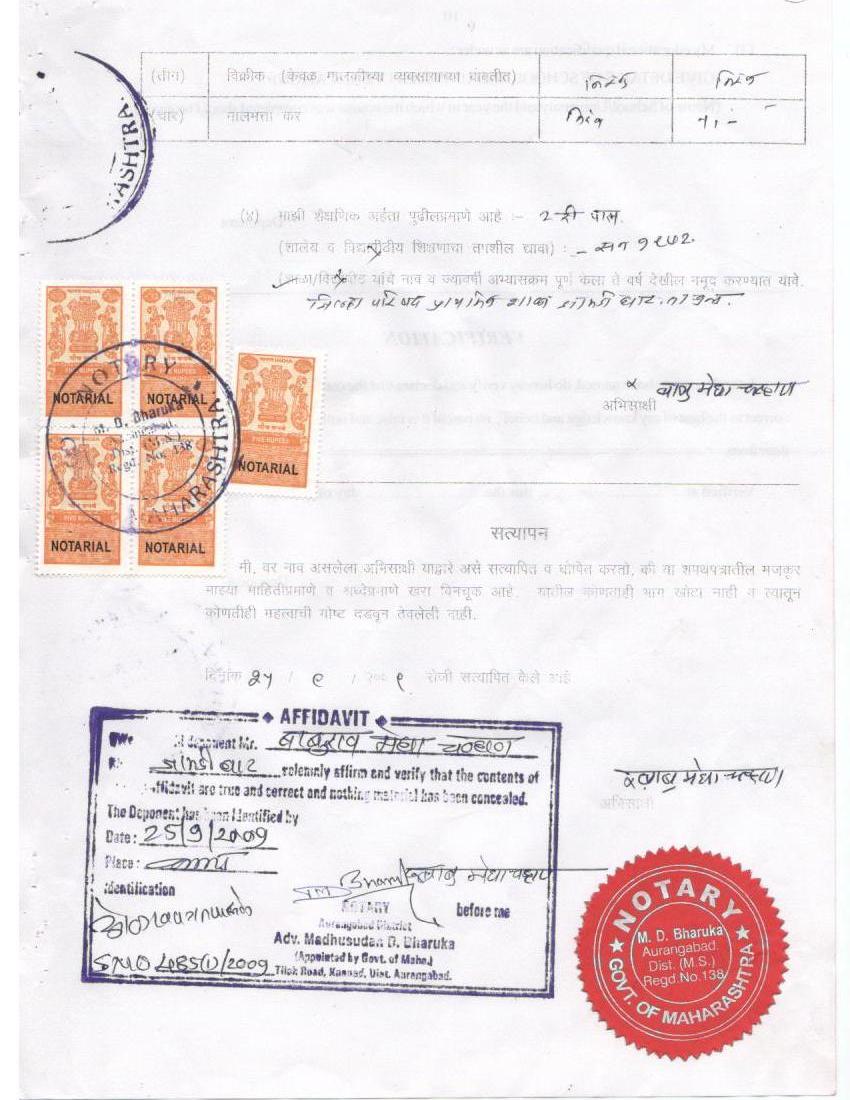 (तीन) विक्रीक (केवळ मालकीच्या व्यवसायाच्या बाबतीत) निरंक निरंक
(चार) मालमत्ता कर निरंक
(४) माझी शैक्षणिक अर्हता पुढीलप्रमाणे आहे :- २ री पास.
(शालेय व विद्यापीठीय शिक्षणाचा तपशील द्यावा) : - सन १९७२.
(शाळा/विद्यापीठ यांचे नाव व ज्यावर्षी अभ्यासक्रम पूर्ण केला ते वर्ष देखील नमूद करण्यात यावे.
जिल्हा परिषद प्राथमिक शाळा
NOTARIAL NOTARIAL
NOTARIAL
NOTARIAL NOTARIAL
NOTARY
M. D. Bharuka
Regd. No. 138
MAHARASHTRA
बाबु मेघा चव्हाण
अभिसाक्षी
सत्यापन
मी, वर नाव असलेला अभिसाक्षी याद्वारे असे सत्यापित व घोषित करतो, की या शपथपत्रातील मजकूर
माझ्या माहितीप्रमाणे व श्रध्देप्रमाणे खरा बिनचूक आहे. यातील कोणताही भाग खोटा नाही व त्यातून
कोणतीही महत्वाची गोष्ट दडवून ठेवलेली नाही.
दिनांक २५ / ९ / २००९ रोजी सत्यापित केले आहे
AFFIDAVIT
deponent Mr. बाबुराव मेघा चव्हाण
solemnly affirm and verify that the contents of
affidavit are true and correct and nothing material has been concealed.
The Deponent has been Identified by
Date : 25/9/2009
Place :
Identification
बाबु मेघा चव्हाण
NOTARY before me
Aurangabad District
Adv. Madhusudan D. Bharuka
(Appointed by Govt. of Maha.)
Tilok Road, Kannad, Dist. Aurangabad.
बाबु मेघा चव्हाण
अभिसाक्षी
NOTARY
M. D. Bharuka
Aurangabad.
Dist. (M.S.)
Regd.No.138
GOVT. OF MAHARASHTRA